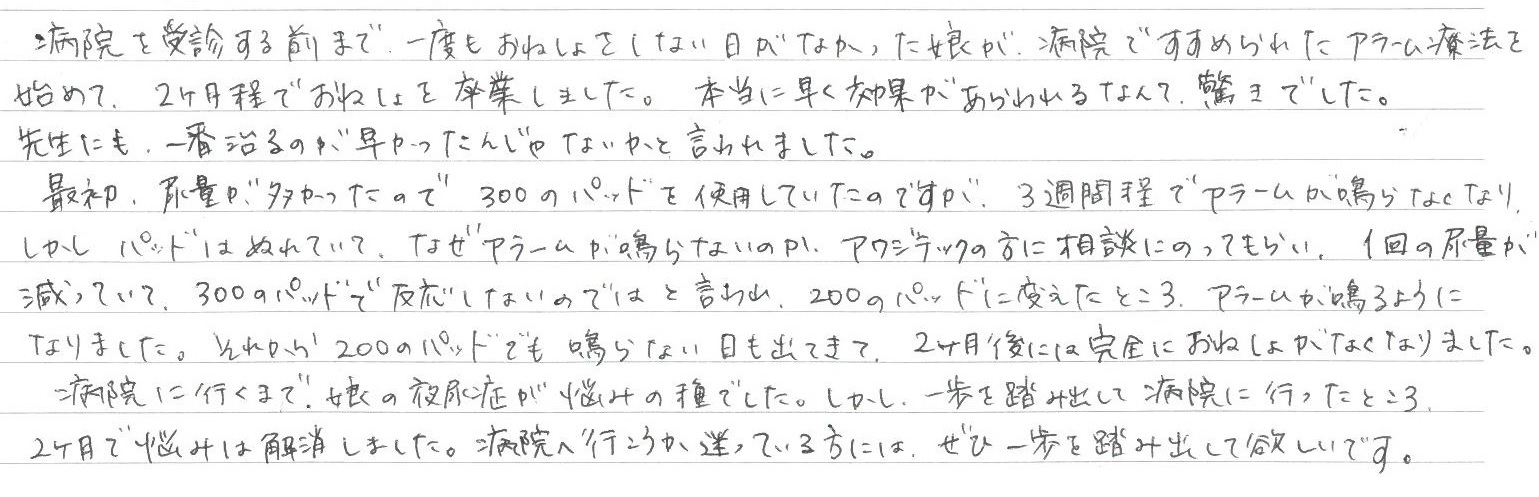 病院を受診する前まで、一度もおねしょをしない日がなかった娘が、病院ですすめられたアラーム療法を
始めて、2ケ月程でおねしょを卒業しました。本当に早く効果があらわれるなんて、驚きでした。
先生にも、一番治るのが早かったんじゃないかと言われました。
最初、尿量が多かったので300のパッドを使用していたのですが、3週間程でアラームが鳴らなくなり、
しかしパッドはぬれていて、なぜアラームが鳴らないのか、アワジテックの方に相談にのってもらい、1回の尿量が
減っていて、300のパッドで反応しないのではと言われ、200のパッドに変えたところ、アラームが鳴るように
なりました。それから200のパッドでも鳴らない日も出てきて、2ケ月後には完全におねしょがなくなりました。
病院に行くまで、娘の夜尿症が悩みの種でした。しかし、一歩を踏み出して病院に行ったところ、
2ケ月で悩みは解消しました。病院へ行こうか迷っている方には、ぜひ一歩を踏み出して欲しいです。